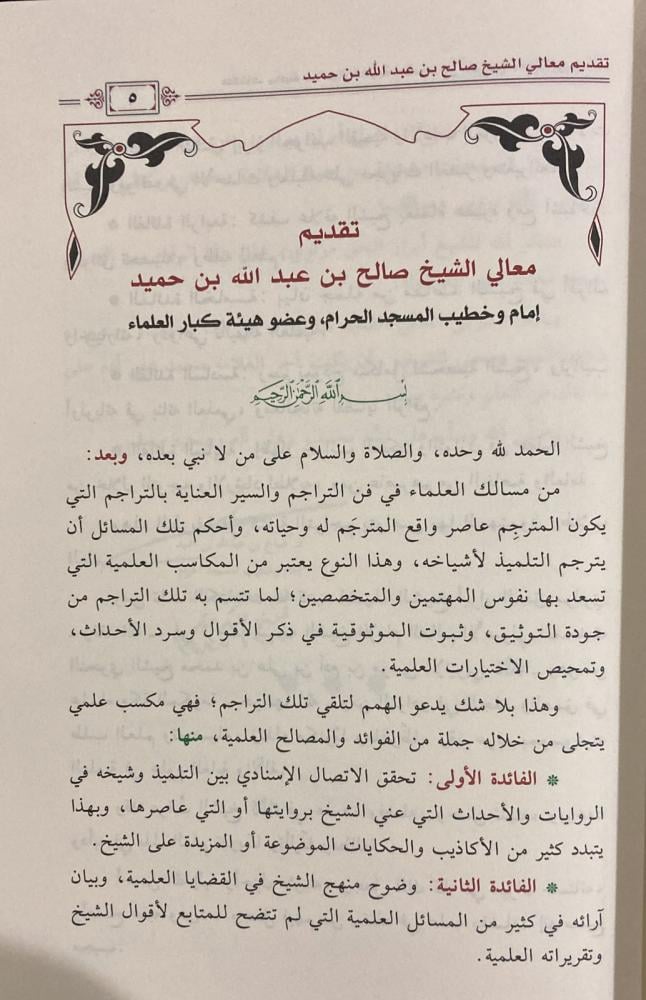 تقديم معالي الشيخ صالح بن عبد الله بن حميد
٥
تقديم
معالي الشيخ صالح بن عبد الله بن حميد
إمام وخطيب المسجد الحرام، وعضو هيئة كبار العلماء
بسم الله الرحمن الرحيم
الحمد لله وحده، والصلاة والسلام على من لا نبي بعده، وبعد:
من مسالك العلماء في فن التراجم والسير العناية بالتراجم التي
يكون المترجِم عاصر واقع المترجَم له وحياته، وأحكم تلك المسائل أن
يترجم التلميذ لأشياخه، وهذا النوع يعتبر من المكاسب العلمية التي
تسعد بها نفوس المهتمين والمتخصصين؛ لما تتسم به تلك التراجم من
جودة التوثيق، وثبوت الموثوقية في ذكر الأقوال وسرد الأحداث،
وتمحيص الاختيارات العلمية.
وهذا بلا شك يدعو الهمم لتلقي تلك التراجم؛ فهي مكسب علمي
يتجلى من خلاله جملة من الفوائد والمصالح العلمية، منها:
* الفائدة الأولى: تحقق الاتصال الإسنادي بين التلميذ وشيخه في
الروايات والأحداث التي عني الشيخ بروايتها أو التي عاصرها، وبهذا
يتبدد كثير من الأكاذيب والحكايات الموضوعة أو المزيدة على الشيخ.
* الفائدة الثانية: وضوح منهج الشيخ في القضايا العلمية، وبيان
آرائه في كثير من المسائل العلمية التي لم تتضح للمتابع لأقوال الشيخ
وتقريراته العلمية.